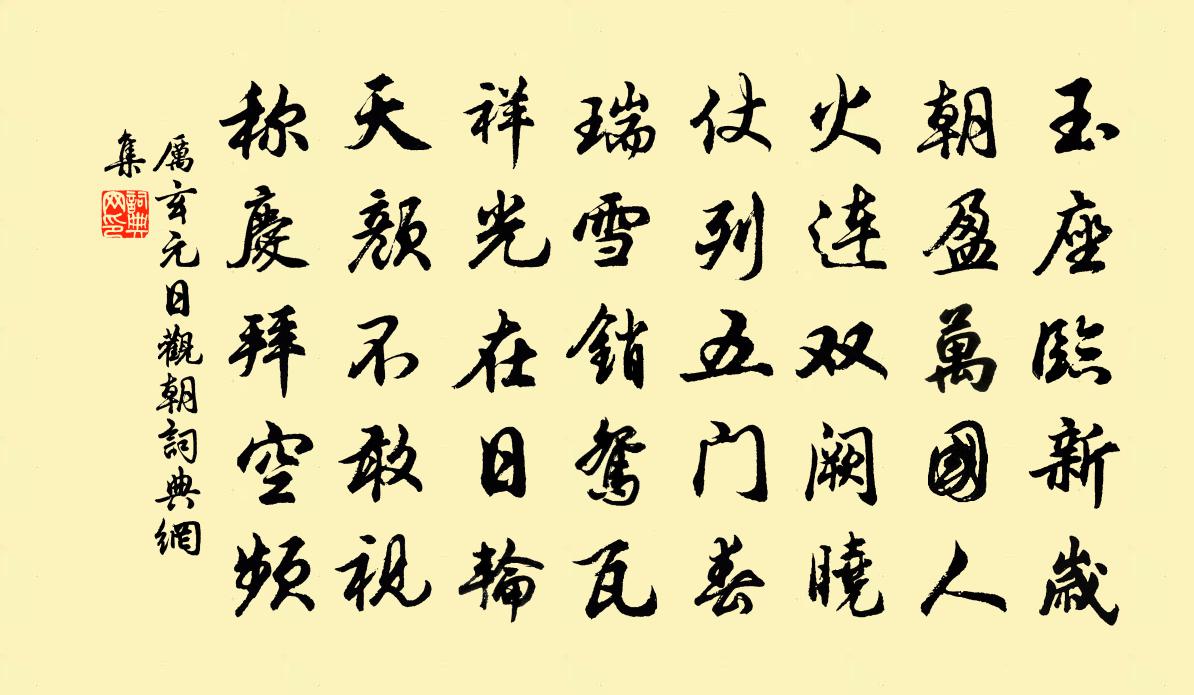 玉座臨新歲
朝盈萬國人
火連双阙曉
仗列五门春
瑞雪銷鴛瓦
祥光在日輪
天顔不敢視
称慶拜空頻
厲玄元日觀朝詞典網
集
詞典网印